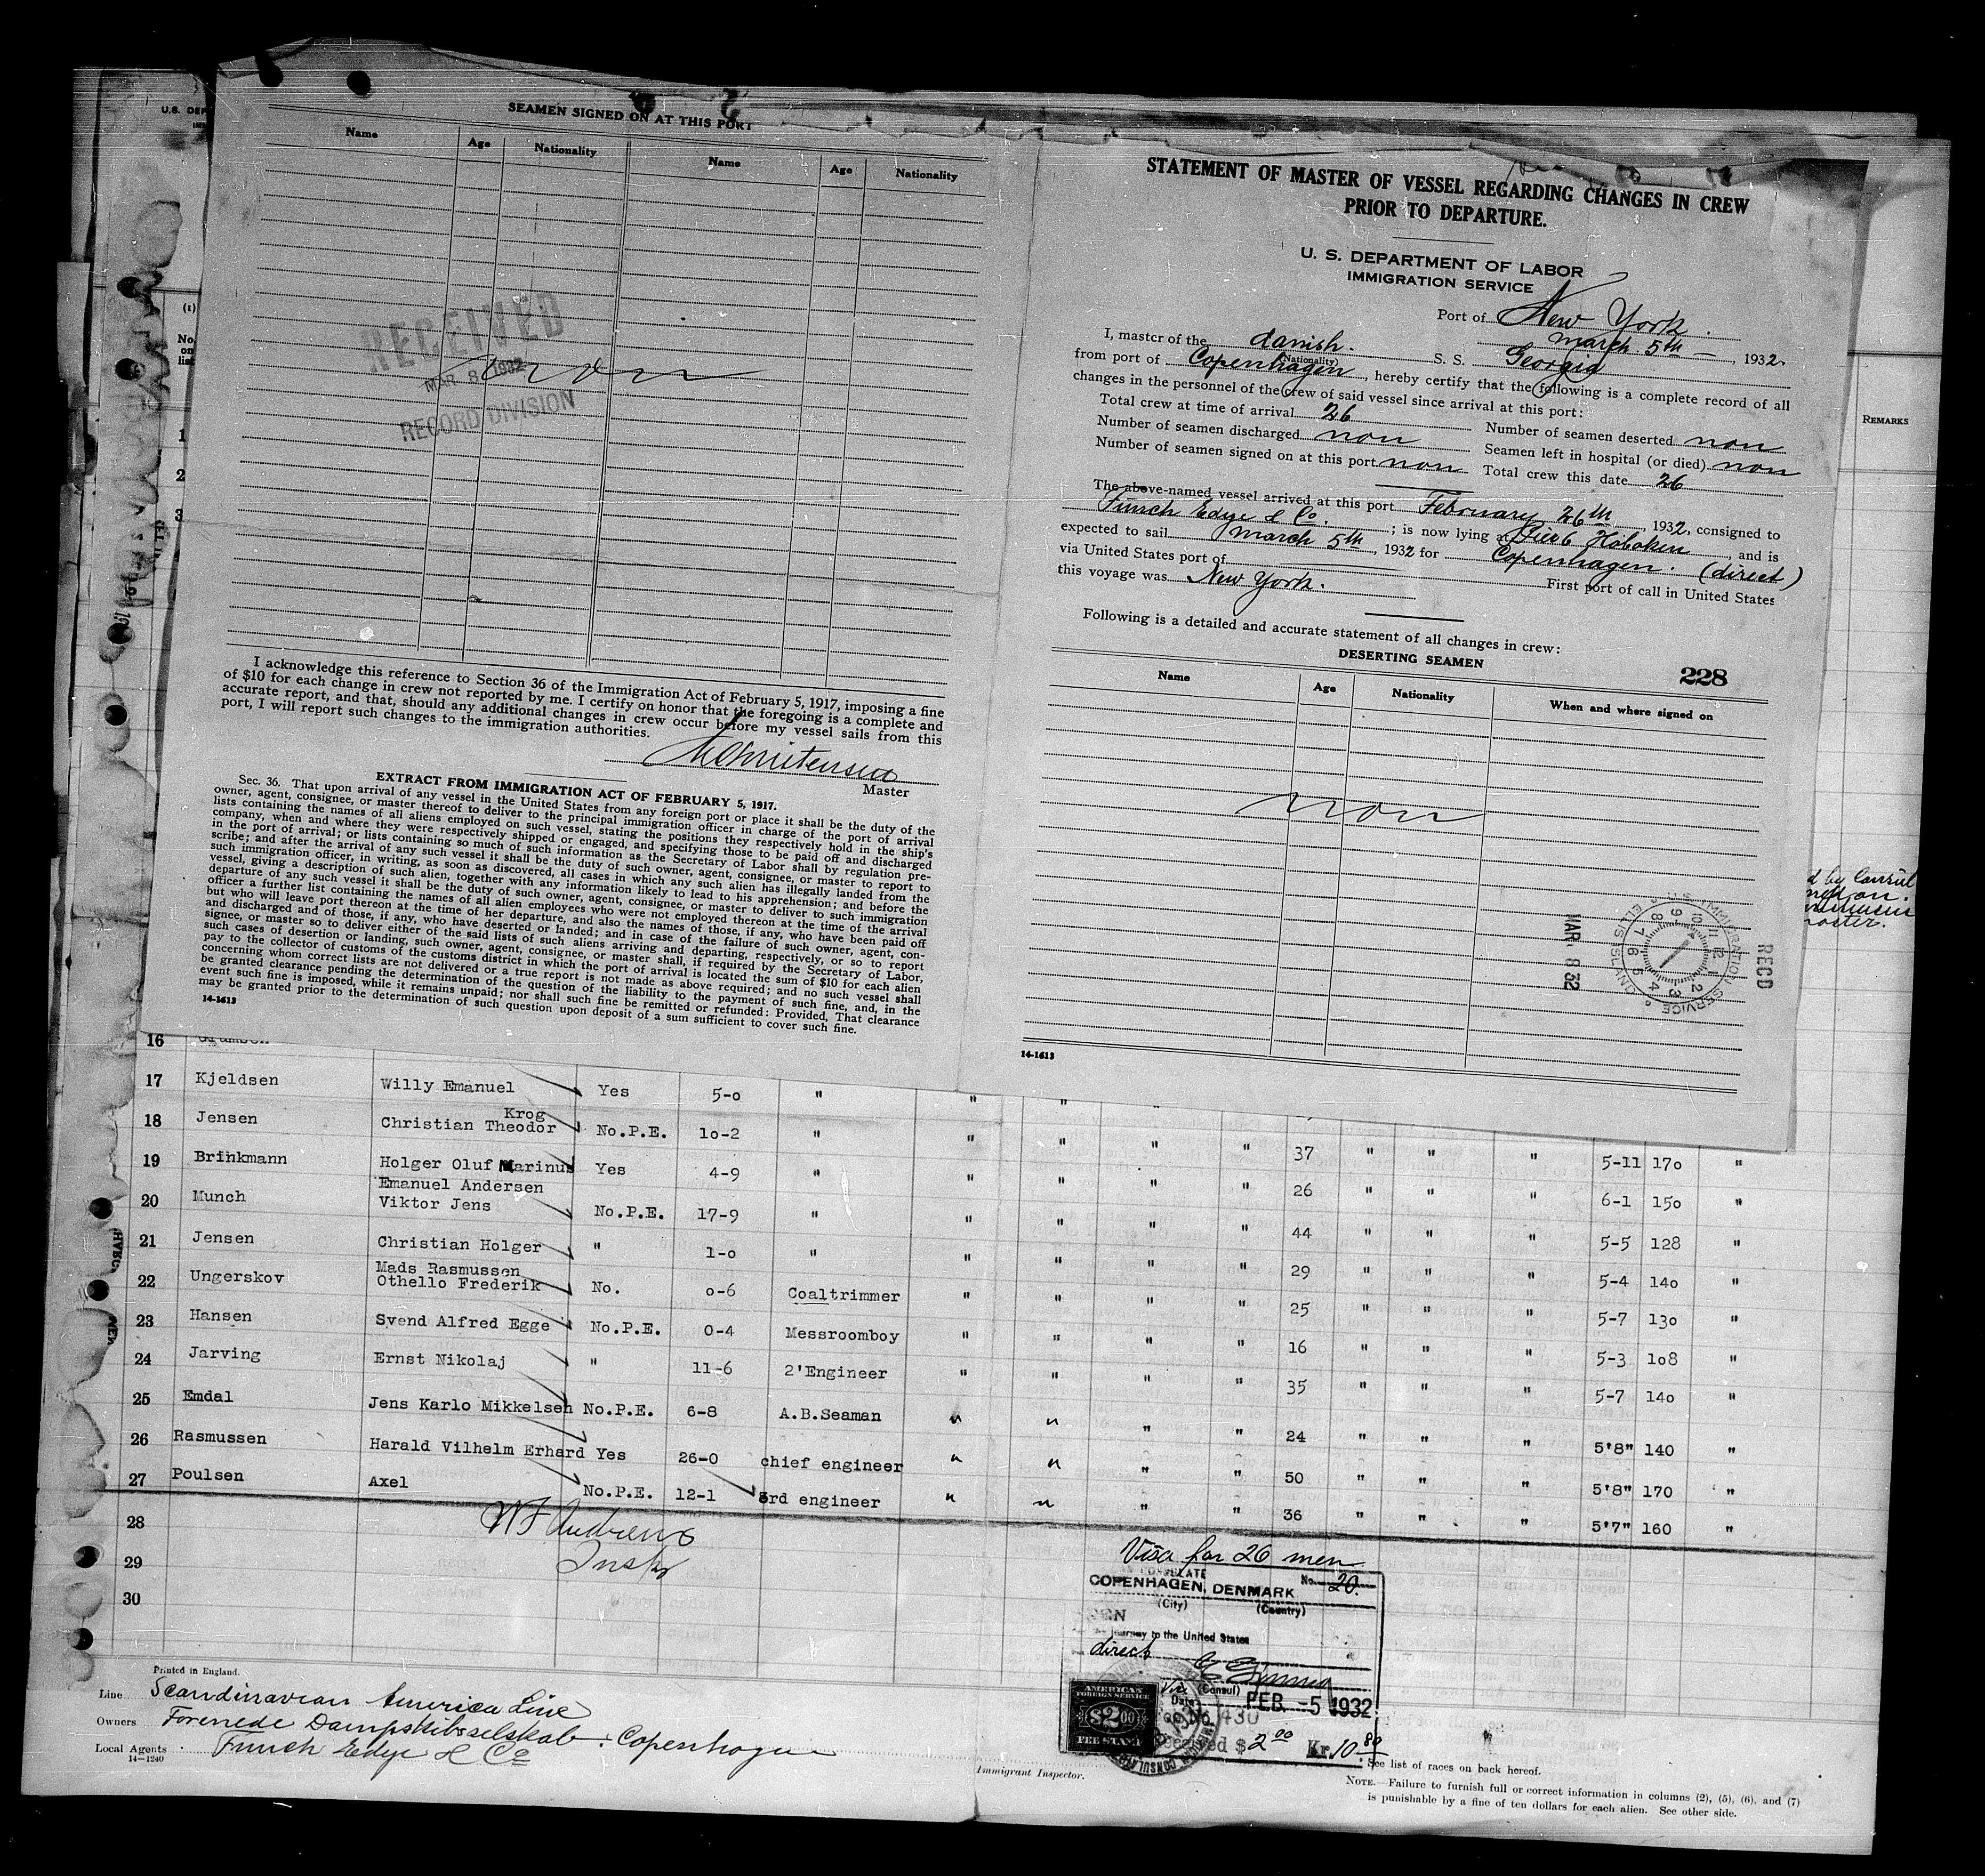 U.S. DEP
SEAMEN SIGNED ON AT THIS PORT
Name Age Nationality Name Age Nationality
RECEIVED
MAR 8 1932
RECORD DIVISION
non
I acknowledge this reference to Section 36 of the Immigration Act of February 5, 1917, imposing a fine
of $10 for each change in crew not reported by me. I certify on honor that the foregoing is a complete and
accurate report, and that, should any additional changes in crew occur before my vessel sails from this
port, I will report such changes to the immigration authorities.
Master
EXTRACT FROM IMMIGRATION ACT OF FEBRUARY 5, 1917.
Sec. 36. That upon arrival of any vessel in the United States from any foreign port or place it shall be the duty of the
owner, agent, consignee, or master thereof to deliver to the principal immigration officer in charge of the port of arrival
lists containing the names of all aliens employed on such vessel, stating the positions they respectively hold in the ship's
company, when and where they were respectively shipped or engaged, and specifying those to be paid off and discharged
in the port of arrival; or lists containing so much of such information as the Secretary of Labor shall by regulation pre-
scribe; and after the arrival of any such vessel it shall be the duty of such owner, agent, consignee, or master to report to
such immigration officer, in writing, as soon as discovered, all cases in which any such alien has illegally landed from the
vessel, giving a description of such alien, together with any information likely to lead to his apprehension; and before the
departure of any such vessel it shall be the duty of such owner, agent, consignee, or master to deliver to such immigration
officer a further list containing the names of all alien employees who were not employed thereon at the time of the arrival
but who will leave port thereon at the time of her departure, and also the names of those, if any, who have been paid off
and discharged and of those, if any, who have deserted or landed; and in case of the failure of such owner, agent, con-
signee, or master so to deliver either of the said lists of such aliens arriving and departing, respectively, or so to report
such cases of desertion or landing, such owner, agent, consignee, or master shall, if required by the Secretary of Labor,
pay to the collector of customs of the customs district in which the port of arrival is located the sum of $10 for each alien
concerning whom correct lists are not delivered or a true report is not made as above required; and no such vessel shall
be granted clearance pending the determination of the question of the liability to the payment of such fine, and, in the
event such fine is imposed, while it remains unpaid; nor shall such fine be remitted or refunded: Provided, That clearance
may be granted prior to the determination of such question upon deposit of a sum sufficient to cover such fine.
14-1613
STATEMENT OF MASTER OF VESSEL REGARDING CHANGES IN CREW
PRIOR TO DEPARTURE.
U. S. DEPARTMENT OF LABOR
IMMIGRATION SERVICE
Port of New York.
March 5th, 1932.
I, master of the danish. S. S. Georgia
(Nationality)
from port of Copenhagen, hereby certify that the following is a complete record of all
changes in the personnel of the crew of said vessel since arrival at this port:
Total crew at time of arrival 26
Number of seamen discharged non Number of seamen deserted non
Number of seamen signed on at this port non Seamen left in hospital (or died) non
Total crew this date 26
The above-named vessel arrived at this port February 26th, 1932, consigned to
Funch Edye & Co.; is now lying at Pier 6 Hoboken, and is
expected to sail March 5th, 1932 for Copenhagen. (direct)
via United States port of First port of call in United States
this voyage was New York.
Following is a detailed and accurate statement of all changes in crew:
DESERTING SEAMEN
228
Name Age Nationality When and where signed on
non
RECD
MAR 8 32
U.S. IMMIGRATION SERVICE ELLIS ISLAND
14-1613
REMARKS
(1)
No.
on
list
1
2
3
d by Consul
16
17 Kjeldsen Willy Emanuel Yes 5-0 " " "
18 Jensen Christian Theodor Krog No.P.E. 10-2 " " " " " 37 " " " 5-11 170 "
19 Brinkmann Holger Oluf Marinus Yes 4-9 " " " " " 26 " " " 6-1 150 "
20 Munch Emanuel Andersen Viktor Jens No.P.E. 17-9 " " " " " 44 " " " 5-5 128 "
21 Jensen Christian Holger " 1-0 " " " " " 29 " " " 5-4 140 "
22 Ungerskov Mads Rasmussen Othello Frederik No. 0-6 Coaltrimmer " " " " 25 " " " 5-7 130 "
23 Hansen Svend Alfred Egge No.P.E. 0-4 Messroomboy " " " " 16 " " " 5-3 108 "
24 Jarving Ernst Nikolaj " 11-6 2'Engineer " " " " 35 " " " 5-7 140 "
25 Emdal Jens Karlo Mikkelsen No.P.E. 6-8 A.B.Seaman " " " " 24 " " " 5'8" 140 "
26 Rasmussen Harald Vilhelm Erhard Yes 26-0 chief engineer " " " " 50 " " " 5'8" 170 "
27 Poulsen Axel No.P.E. 12-1 3rd engineer " " " " 36 " " " 5'7" 160 "
28
29
30
WF Andrews
Insp
Visa for 26 men
COPENHAGEN, DENMARK No. 20.
(City) (Country)
Journey to the United States
direct
(Consul)
Date FEB -5 1932
AMERICAN
FOREIGN SERVICE
$2.00
FEE STAMP
No. 430
$ 2.00 Kr. 10.80
Printed in England.
Line Scandinavian America Line
Owners Forenede Dampskibsselskab. Copenhagen
Local Agents Funch Edye & Co
14-1240
Immigrant Inspector.
See list of races on back hereof.
NOTE.—Failure to furnish full or correct information in columns (2), (5), (6), and (7)
is punishable by a fine of ten dollars for each alien. See other side.